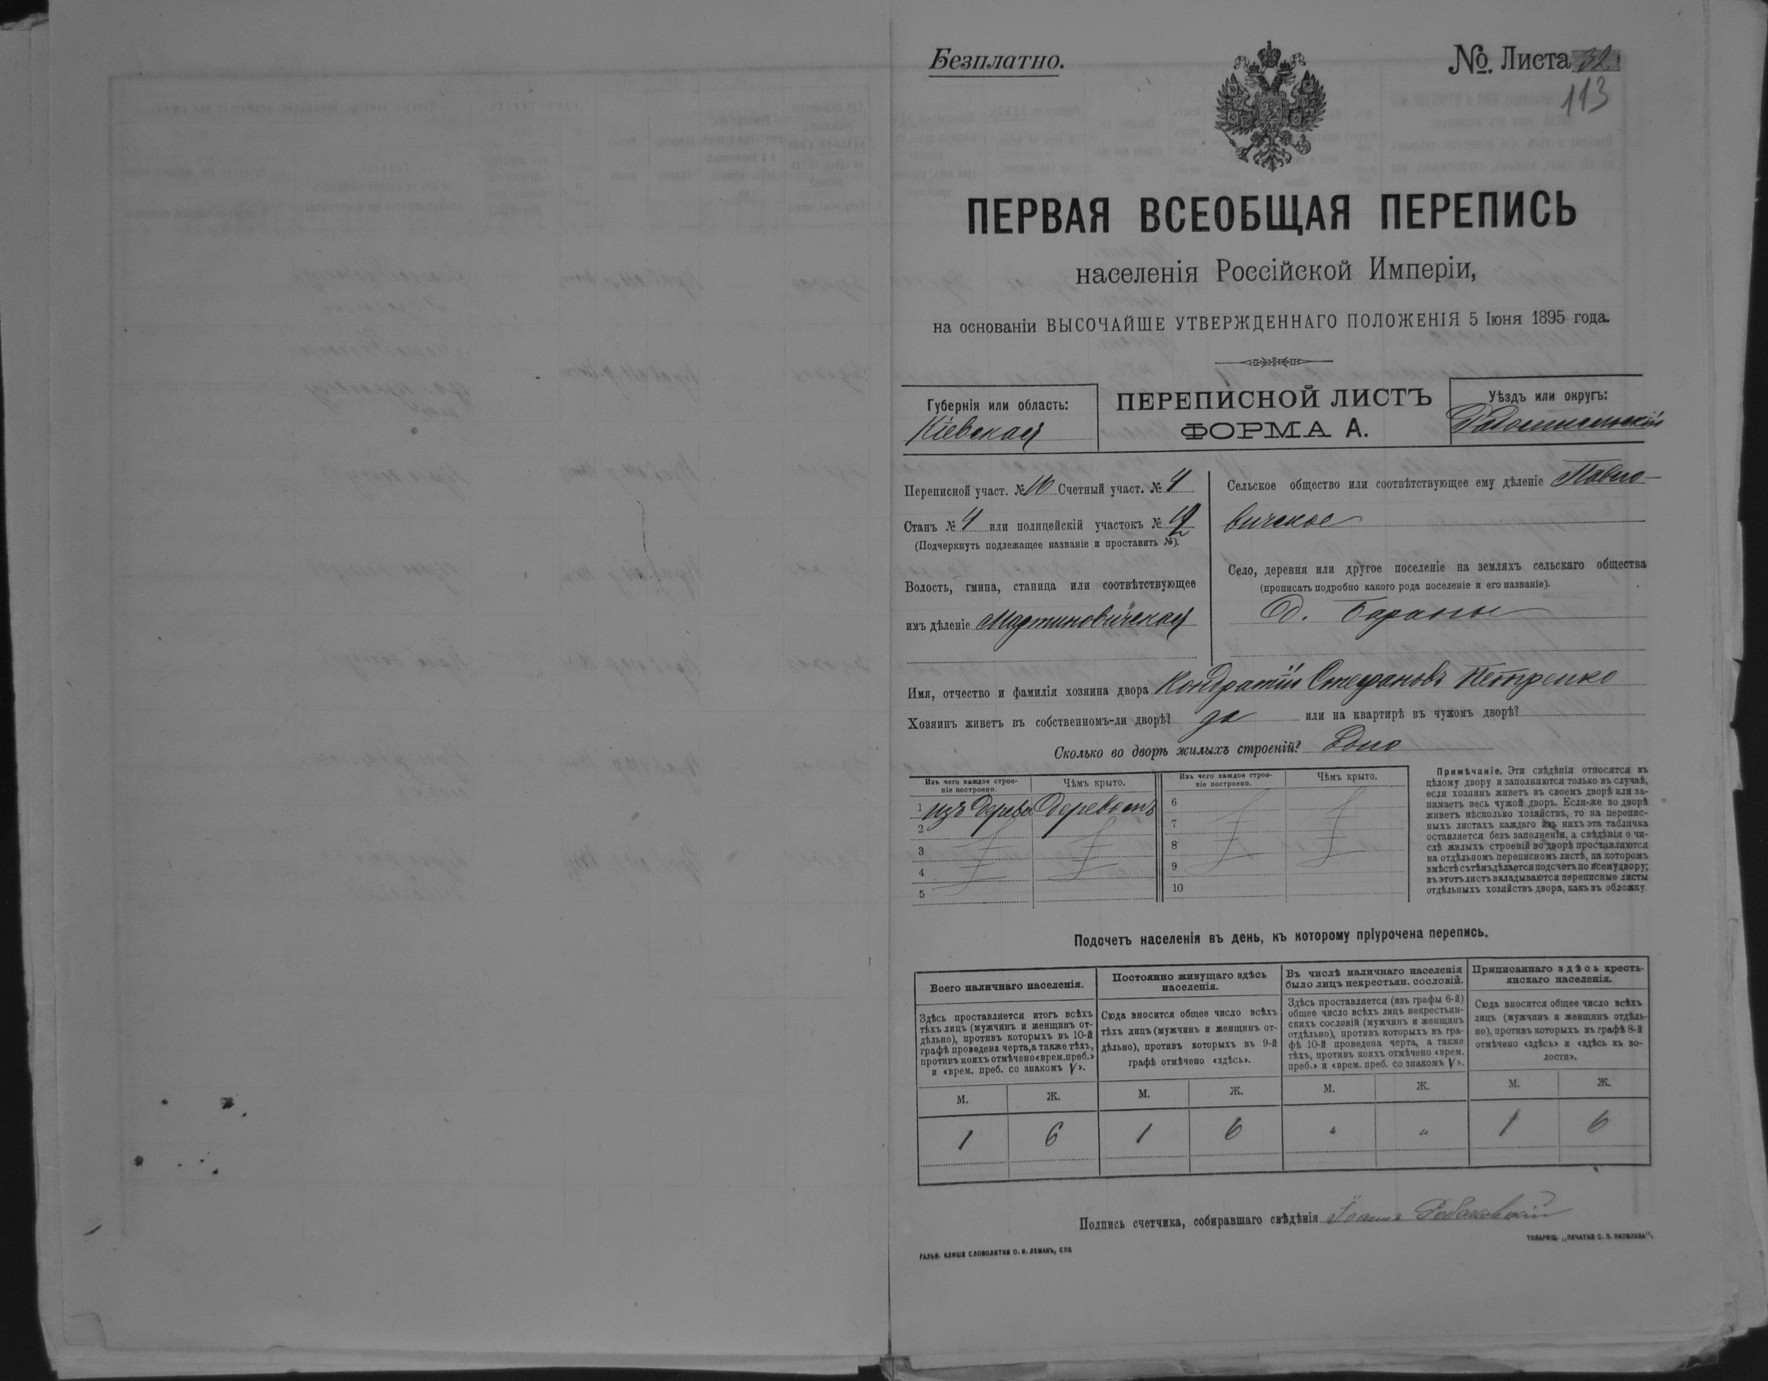 Безплатно.
№. Листа 32
113
ПЕРВАЯ ВСЕОБЩАЯ ПЕРЕПИСЬ
населенія Россійской Имперіи,
на основаніи ВЫСОЧАЙШЕ УТВЕРЖДЕННАГО ПОЛОЖЕНІЯ 5 Іюня 1895 года.
Губернія или область:
Кіевская
ПЕРЕПИСНОЙ ЛИСТЪ
ФОРМА А.
Уѣздъ или округъ:
Радомысльскій
Переписной участ. № 16 Счетный участ. № 4
Станъ № 4 или полицейскій участокъ №
(Подчеркнуть подлежащее названіе и проставить №).
Волость, гмина, станица или соотвѣтствующее
имъ дѣленіе Мартиновичская
Сельское общество или соотвѣтствующее ему дѣленіе Павло-
вичское
Село, деревня или другое поселеніе на земляхъ сельскаго общества
(прописать подробно какого рода поселеніе и его названіе).
Д. Бараны
Имя, отчество и фамилія хозяина двора Кондратій Стефановъ Петренко
Хозяинъ живетъ въ собственномъ-ли дворѣ? да или на квартирѣ въ чужомъ дворѣ?
Сколько во дворѣ жилыхъ строеній? Одно
Изъ чего каждое строе-
ніе построено.
Чѣмъ крыто.
1 изъ дерева деревомъ
2
3
4
5
Изъ чего каждое строе-
ніе построено.
Чѣмъ крыто.
6
7
8
9
10
Примѣчаніе. Эти свѣдѣнія относятся къ
цѣлому двору и заполняются только въ случаѣ,
если хозяинъ живетъ въ своемъ дворѣ или за-
нимаетъ весь чужой дворъ. Если-же во дворѣ
живетъ нѣсколько хозяйствъ, то на перепис-
ныхъ листахъ каждаго изъ нихъ эта табличка
оставляется безъ заполненія, а свѣдѣнія о чи-
слѣ жилыхъ строеній во дворѣ проставляются
на отдѣльномъ переписномъ листѣ, на которомъ
вмѣстѣ съ тѣмъ дѣлается подсчетъ по всему двору;
въ этотъ листъ вкладываются переписные листы
отдѣльныхъ хозяйствъ двора, какъ въ обложку.
Подсчетъ населенія въ день, къ которому пріурочена перепись.
Всего наличнаго населенія.
Здѣсь проставляется итогъ всѣхъ
тѣхъ лицъ (мужчинъ и женщинъ от-
дѣльно), противъ которыхъ въ 10-й
графѣ проведена черта, а также тѣхъ,
противъ коихъ отмѣчено «врем. преб.»
и «врем. преб. со знакомъ V».
М. Ж.
1 6
Постоянно живущаго здѣсь
населенія.
Сюда вносится общее число всѣхъ
тѣхъ лицъ (мужчинъ и женщинъ от-
дѣльно), противъ которыхъ въ 9-й
графѣ отмѣчено «здѣсь».
М. Ж.
1 6
Въ числѣ наличнаго населенія
было лицъ некрестьян. сословій.
Здѣсь проставляется (изъ графы 6-й)
общее число всѣхъ лицъ некрестьян-
скихъ сословій (мужчинъ и женщинъ
отдѣльно), противъ которыхъ въ гра-
фѣ 10-й проведена черта, а также
тѣхъ, противъ коихъ отмѣчено «врем.
преб.» и «врем. преб. со знакомъ V».
М. Ж.
" "
Приписаннаго здѣсь кресть-
янскаго населенія.
Сюда вносится общее число всѣхъ
лицъ (мужчинъ и женщинъ отдѣль-
но), противъ которыхъ въ графѣ 8-й
отмѣчено «здѣсь» и «здѣсь въ во-
лости».
М. Ж.
1 6
Подпись счетчика, собиравшаго свѣдѣнія
ТОВАРИЩ. „ПЕЧАТНЯ С. П. ЯКОВЛЕВА“.
СЛОВОЛИТНИ О. И. ЛЕМАНЪ, СПБ